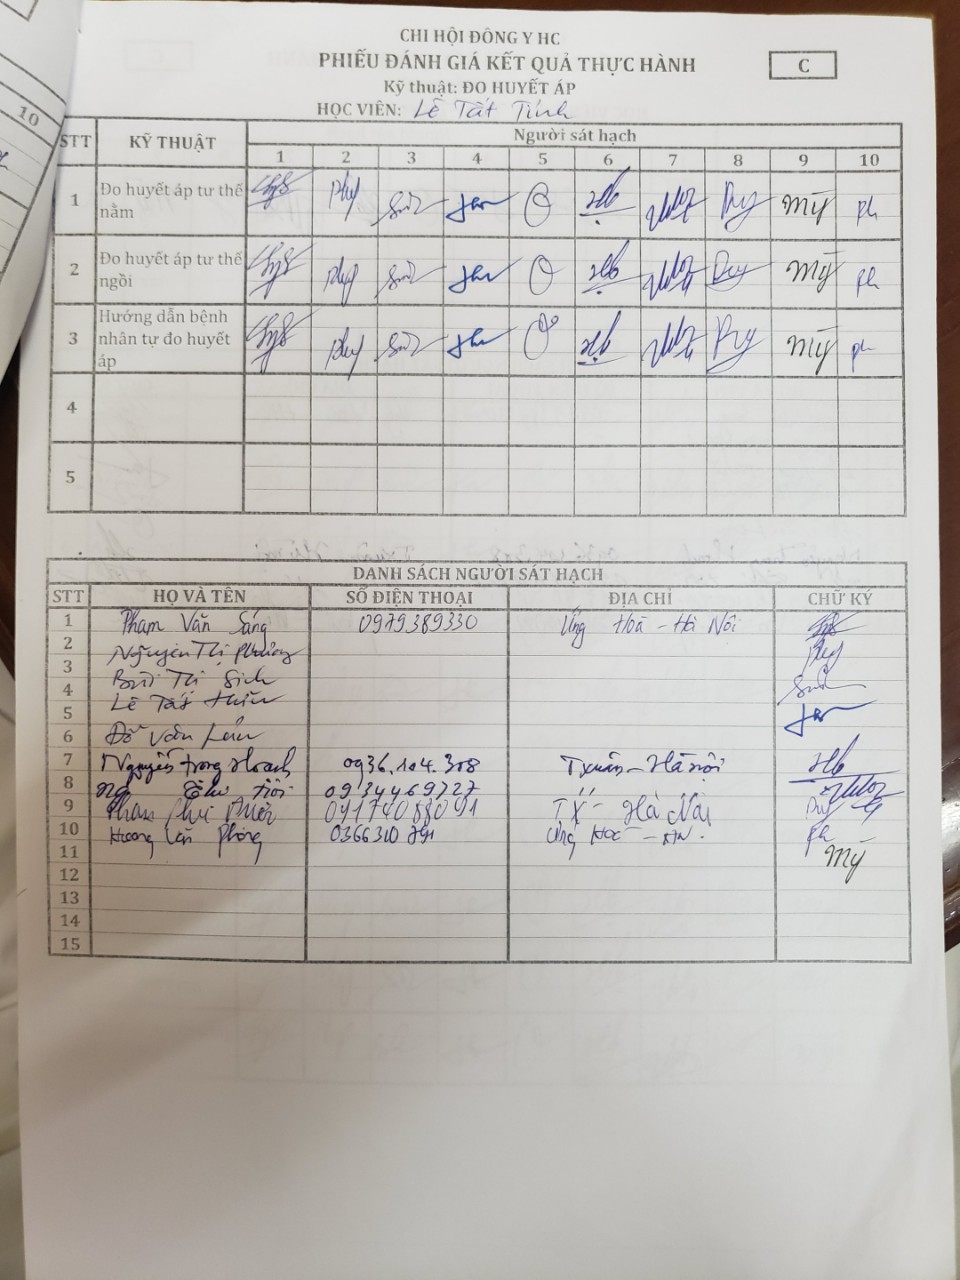 10
CHI HỘI ĐÔNG Y HC
PHIẾU ĐÁNH GIÁ KẾT QUẢ THỰC HÀNH
C
Kỹ thuật: ĐO HUYẾT ÁP
HỌC VIÊN: Lê Tất Tính
STT KỸ THUẬT Người sát hạch
1 2 3 4 5 6 7 8 9 10
1 Đo huyết áp tư thế nằm Mỹ ph
2 Đo huyết áp tư thế ngồi Mỹ ph
3 Hướng dẫn bệnh nhân tự đo huyết áp Mỹ ph
4
5
DANH SÁCH NGƯỜI SÁT HẠCH
STT HỌ VÀ TÊN SỐ ĐIỆN THOẠI ĐỊA CHỈ CHỮ KÝ
1 Phạm Văn Sáng 0979389330 Ứng Hoà - Hà Nội
2 Nguyễn Thị Phương
3 Bùi Thị Sinh
4 Lê Tất
5
6 Đỗ Văn
7 Nguyễn trọng Hoạch 0936.104.308 Txuân - Hà nội
8 0934469727
9 Phạm TX - Hà Nội
10 Hương Văn Phòng 0366310 - HN.
11 Mỹ
12
13
14
15